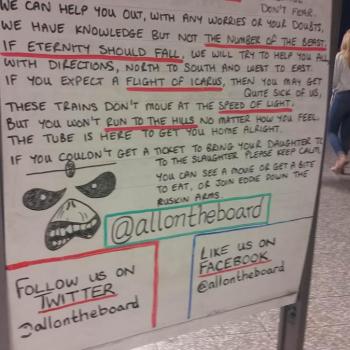 DON'T FEAR.
WE CAN HELP YOU OUT, WITH ANY WORRIES OR YOUR DOUBTS,
WE HAVE KNOWLEDGE BUT NOT THE NUMBER OF THE BEAST.
IF ETERNITY SHOULD FALL, WE WILL TRY TO HELP YOU ALL
WITH DIRECTIONS, NORTH TO SOUTH AND WEST TO EAST.
IF YOU EXPECT A FLIGHT OF ICARUS, THEN YOU MAY GET
QUITE SICK OF US,
THESE TRAINS DON'T MOVE AT THE SPEED OF LIGHT.
BUT YOU WON'T RUN TO THE HILLS NO MATTER HOW YOU FEEL.
THE TUBE IS HERE TO GET YOU HOME ALRIGHT.
IF YOU COULDN'T GET A TICKET TO BRING YOUR DAUGHTER TO
TO THE SLAUGHTER PLEASE KEEP CALM,
YOU CAN SEE A MOVIE OR GET A BITE
TO EAT, OR JOIN EDDIE DOWN THE
RUSKIN ARMS.
@allontheboard
FOLLOW US ON
TWITTER
@allontheboard
LIKE US ON
FACEBOOK
@allontheboard